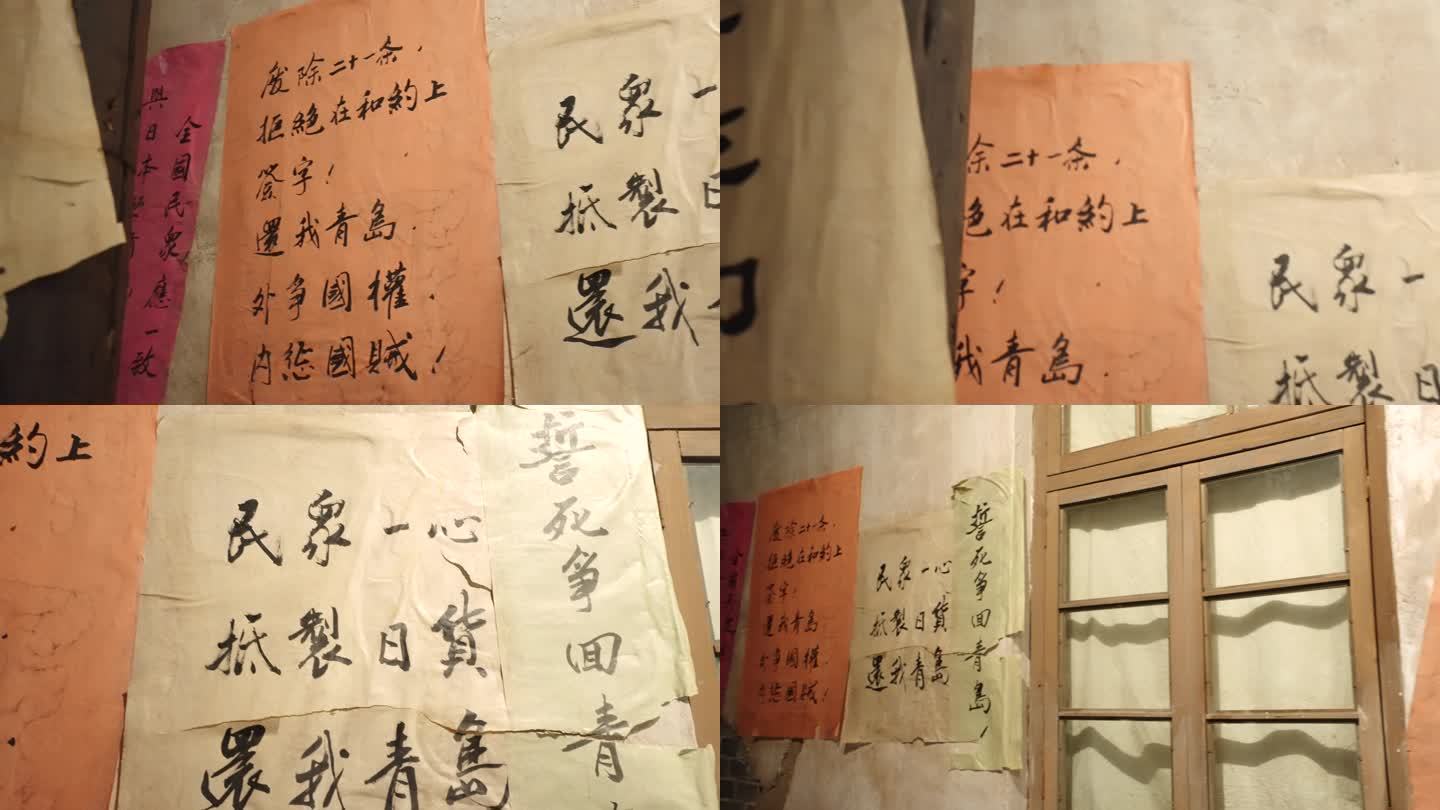 全國民衆應一致
與日本
废除二十一条.
拒絕在和約上
簽字!
還我青島.
外爭國權.
内惩國賊!
民衆一
抵製日
還我
除二十一条.
在和約上
字!
我青島.
民衆一
抵製日
約上
民衆一心
抵製日貨
還我青島
誓死爭回青
废除二十一条.
拒絕在和約上
簽字!
還我青島
外爭國權.
内惩國賊!
民衆一心
抵製日貨
還我青島
誓死爭回青島!